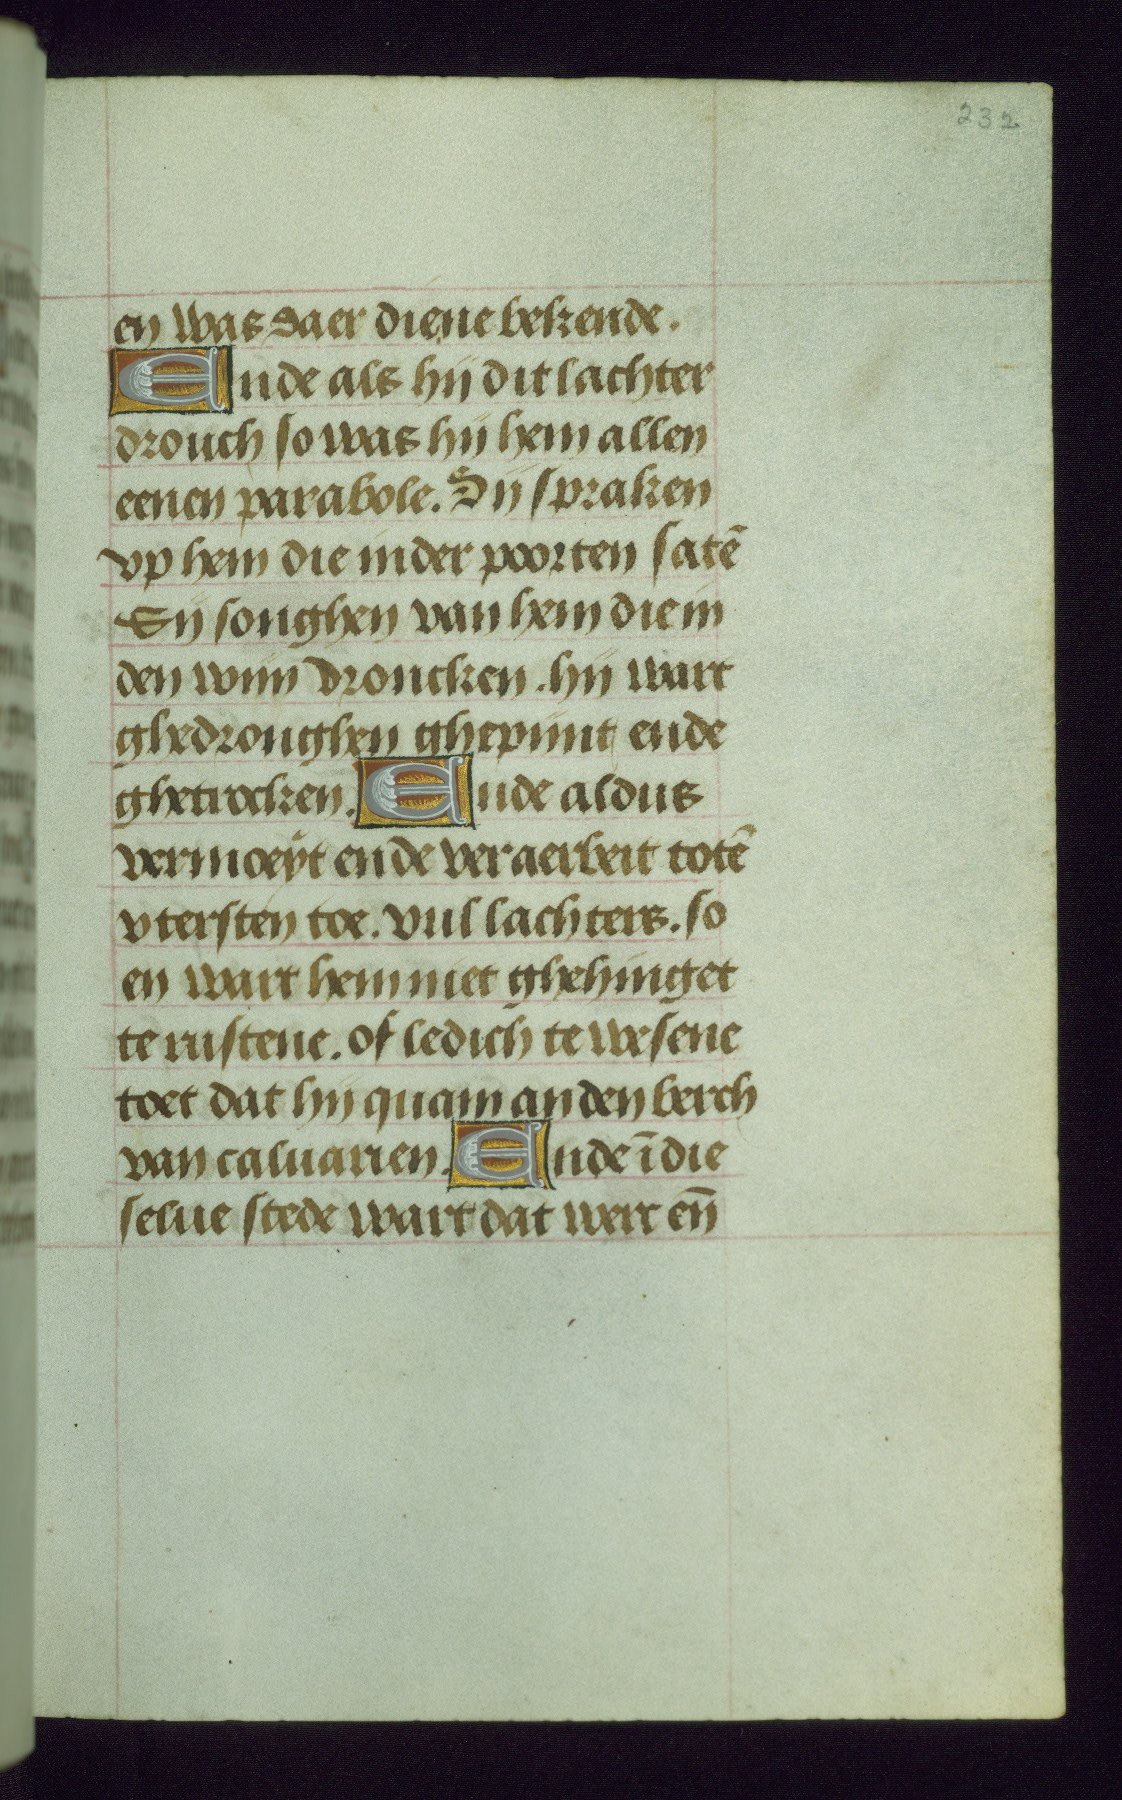 232
en was daer diene bekende.
Ende als hij dit lachter
drouch so was hij hem allen
eenen parabole. Sij spraken
vp hem die in der poorten satē
Sij songhen van hem die in
den wijn droncken. hij wart
ghedronghen ghepijnt ende
ghetrocken. Ende aldus
vermoeyt ende veraerbeit totē
vtersten toe. vul lachters. so
en wart hem niet ghehinget
te rustene. of ledich te wesene
toet dat hij quam an den berch
van caluarien. Ende ī die
selue stede wart dat werc eñ